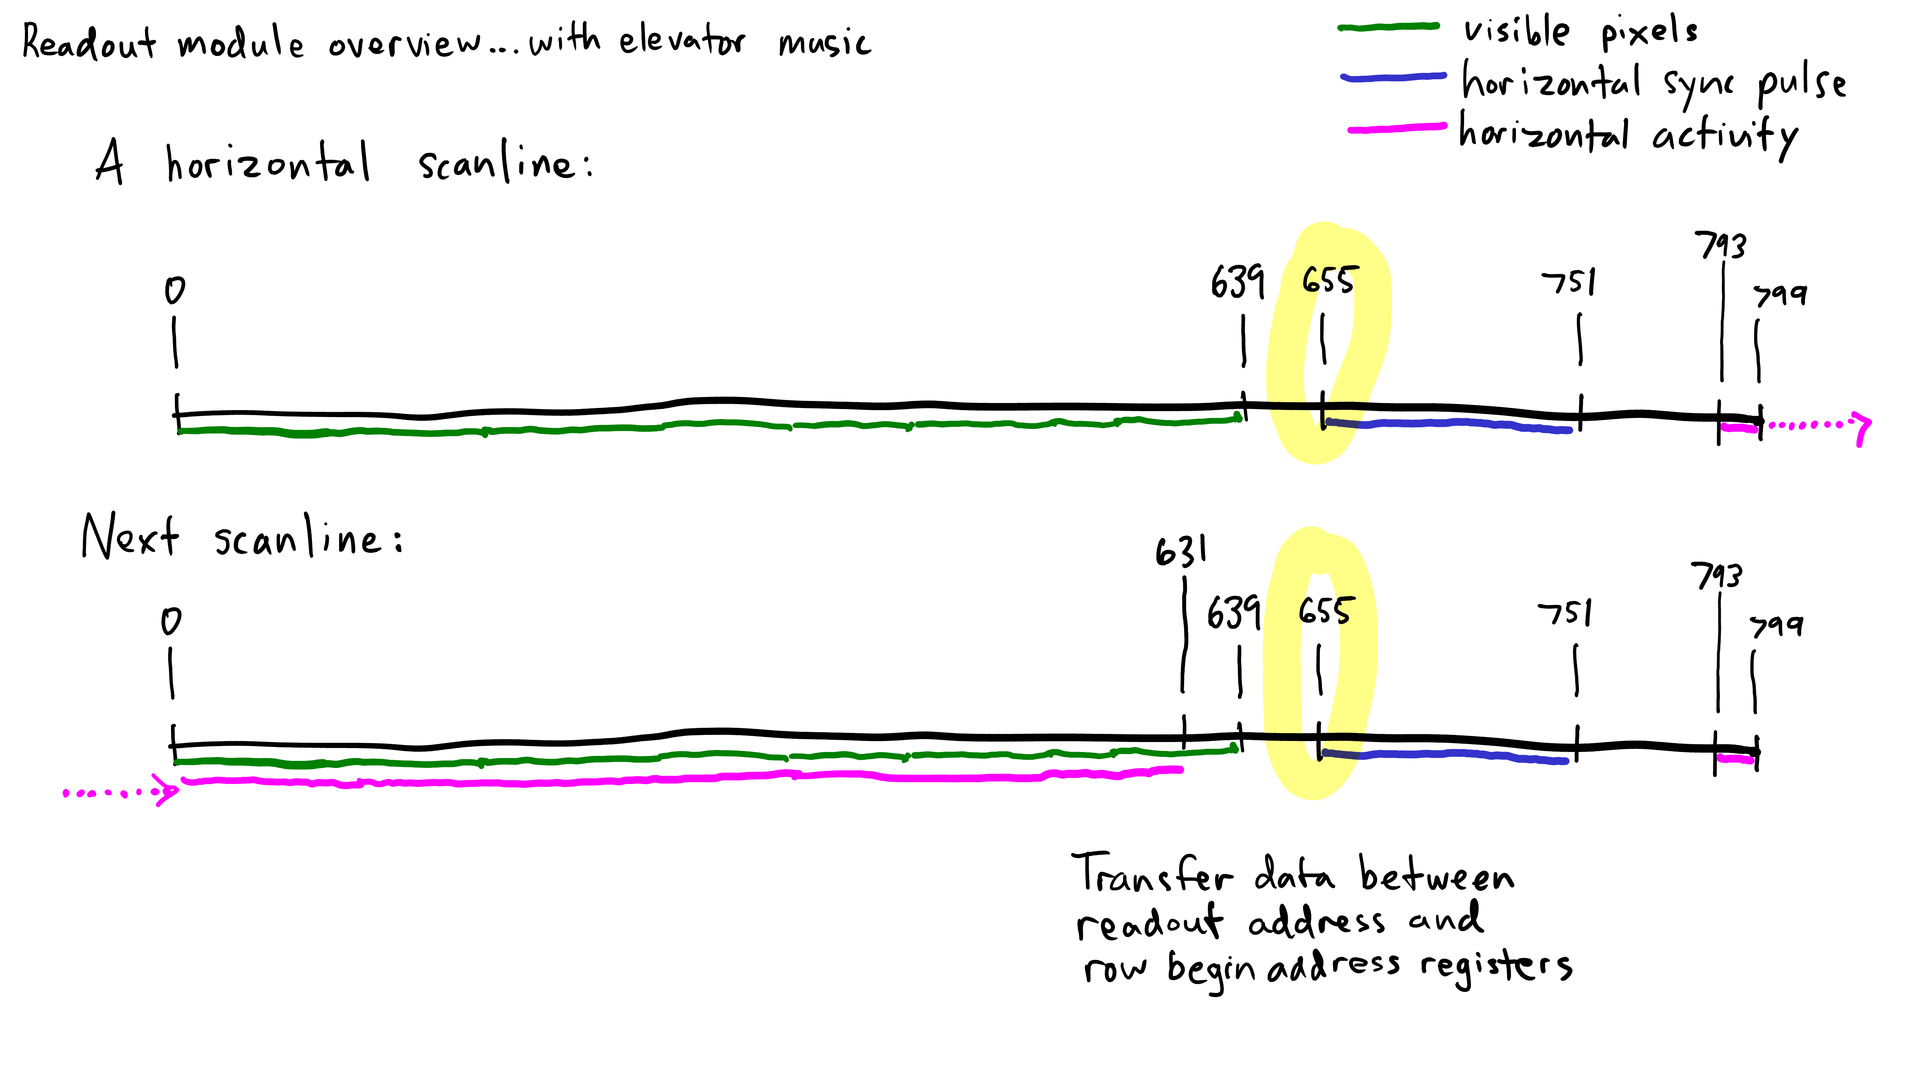 Readout module overview...with elevator music
visible pixels
horizontal sync pulse
horizontal activity
A horizontal scanline:
0
639
655
751
793
799
Next scanline:
0
631
639
655
751
793
799
Transfer data between
readout address and
row begin address registers